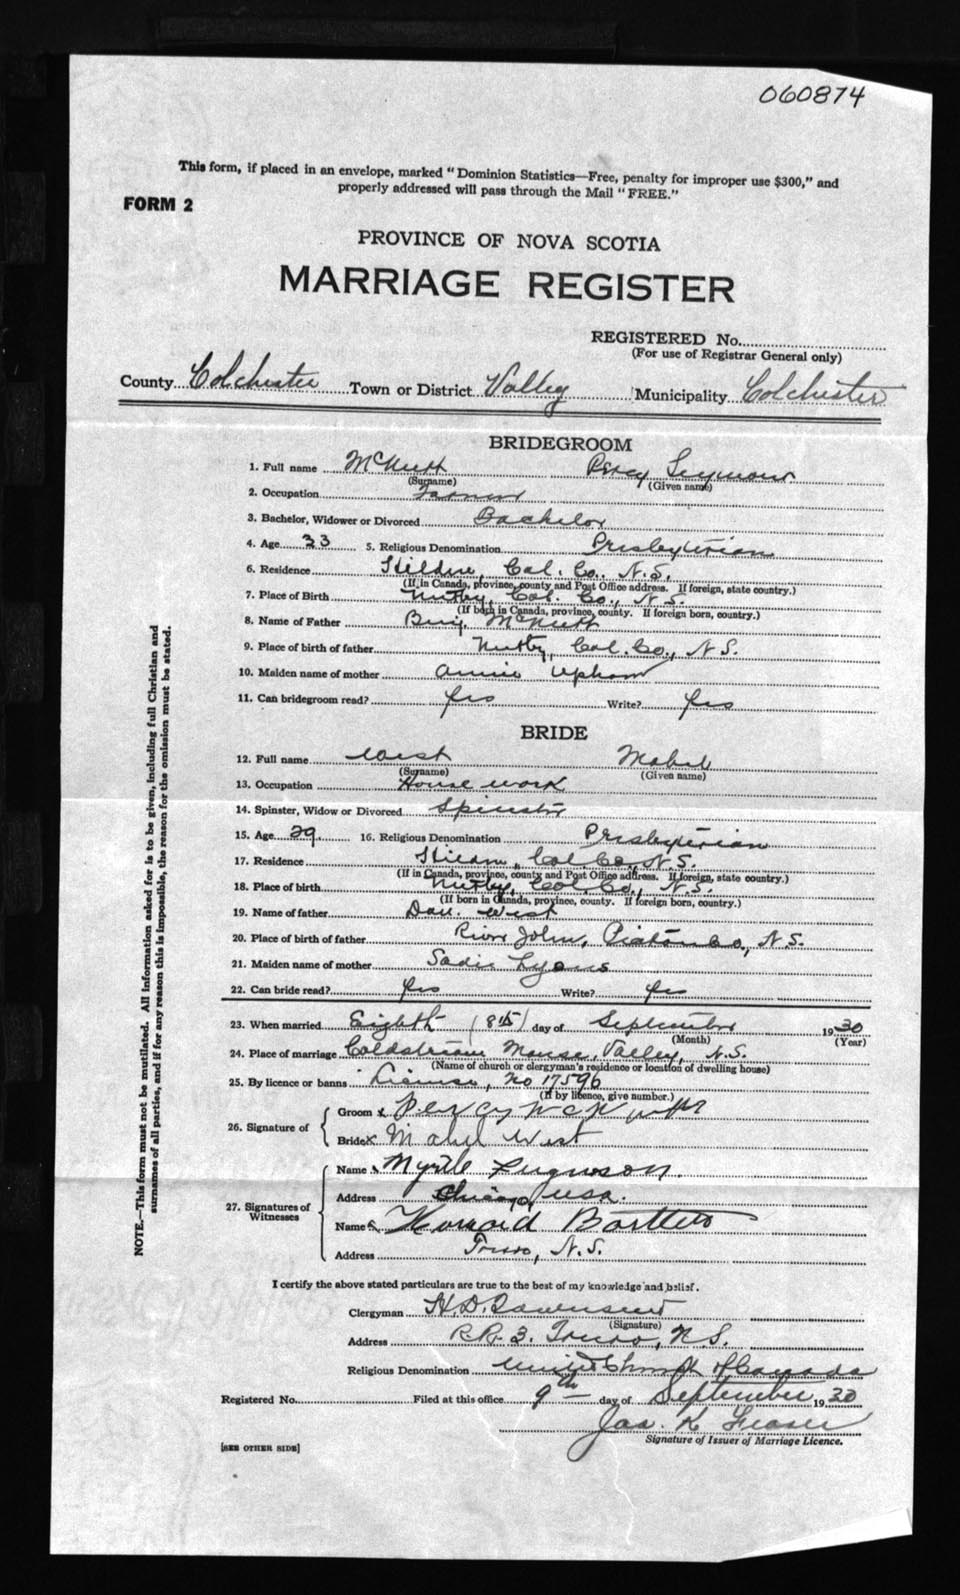 060874
This form, if placed in an envelope, marked "Dominion Statistics—Free, penalty for improper use $300," and
properly addressed will pass through the Mail "FREE."
FORM 2
PROVINCE OF NOVA SCOTIA
MARRIAGE REGISTER
REGISTERED No.
(For use of Registrar General only)
County Colchester Town or District Valley Municipality Colchester
BRIDEGROOM
1. Full name McNutt Percy Seymour
(Surname) (Given name)
2. Occupation Farmer
3. Bachelor, Widower or Divorced Bachelor
4. Age 33 5. Religious Denomination Presbyterian
6. Residence Hilden, Col. Co., N.S.
(If in Canada, province, county and Post Office address. If foreign, state country.)
7. Place of Birth Nutby, Col. Co., N.S.
(If born in Canada, province, county. If foreign born, country.)
8. Name of Father Benj. McNutt
9. Place of birth of father Nutby, Col. Co., N.S.
10. Maiden name of mother Annie Upham
11. Can bridegroom read? Yes Write? Yes
BRIDE
12. Full name West Mabel
(Surname) (Given name)
13. Occupation House work
14. Spinster, Widow or Divorced Spinster
15. Age 29. 16. Religious Denomination Presbyterian
17. Residence Hilden, Col. Co., N.S.
(If in Canada, province, county and Post Office address. If foreign, state country.)
18. Place of birth Nutby, Col. Co., N.S.
(If born in Canada, province, county. If foreign born, country.)
19. Name of father Dan. West
20. Place of birth of father River John, Pictou Co., N.S.
21. Maiden name of mother Sadie Lyons
22. Can bride read? Yes Write? Yes
23. When married Eighth (8th) day of September 1930
(Month) (Year)
24. Place of marriage Coldstream Manse, Valley, N.S.
(Name of church or clergyman's residence or location of dwelling house)
25. By licence or banns License, No 17596
(If by licence, give number.)
26. Signature of
Groom x Percy McNutt
Bride x Mabel West
27. Signatures of Witnesses
Name x Myrtle Ferguson.
Address Chicago, USA.
Name x Howard Bartlett
Address Truro, N.S.
I certify the above stated particulars are true to the best of my knowledge and belief.
Clergyman H. D. Townsend
(Signature)
Address R.R. 3. Truro, N.S.
Religious Denomination United Church of Canada
Registered No. Filed at this office 9th day of September 1930
Jas. K. Fraser
Signature of Issuer of Marriage Licence.
[SEE OTHER SIDE]
NOTE.—This form must not be mutilated. All information asked for is to be given, including full Christian and
surnames of all parties, and if for any reason this is impossible, the reason for the omission must be stated.